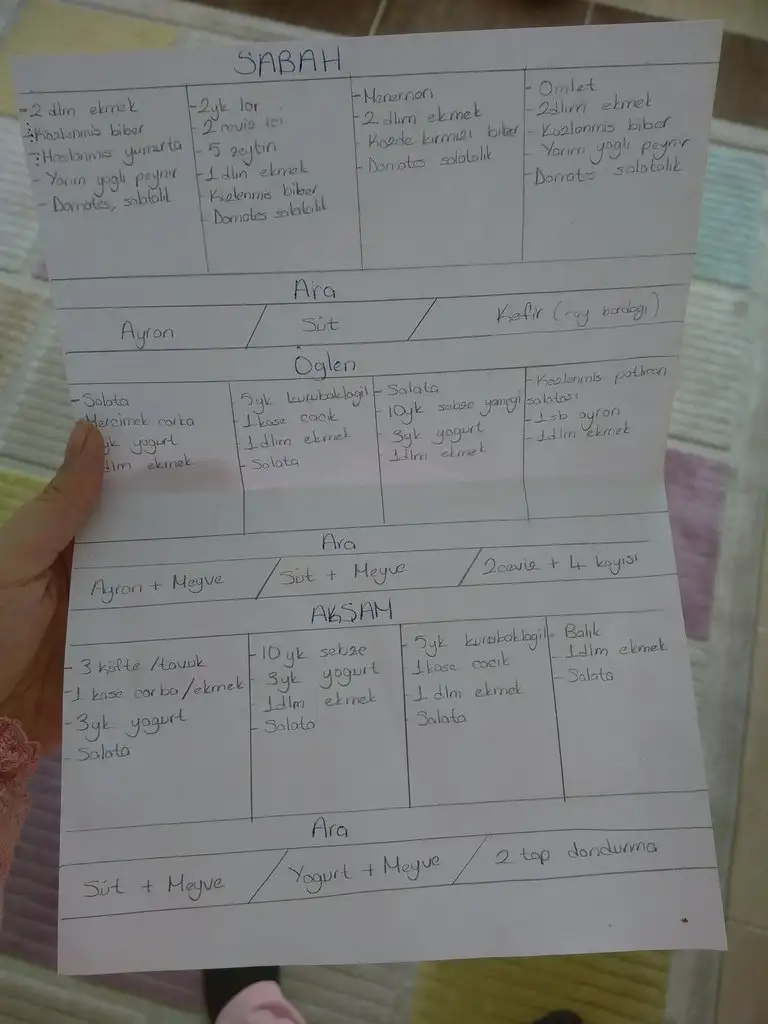 SABAH
- 2 dlm ekmek
- Közlenmis biber
- Haslanmıs yumurta
- Yarım yaglı peynir
- Domates, salatalık
- 2yk lor
- 2 ceviz ici
- 5 zeytin
- 1 dlm ekmek
- Közlenmis biber
- Domates salatalık
- Menemen
- 2 dlım ekmek
- Közde kırmızı biber
- Domates salatalık
- Omlet
- 2dlım ekmek
- Közlenmis biber
- Yarım yaglı peynir
- Domates salatalık
Ara
Ayran / Süt / Kefir (cay bardagı)
Öglen
- Salata
Mercimek corba
yk yogurt
dlm ekmek
5yk kurubaklagil
- 1 kase cacık
- 1 dlım ekmek
- Salata
- Salata
- 10yk sebze yemegi
- 3yk yogurt
- 1dlm ekmek
- Közlenmis patlıcan
salatası
- 1 sb ayran
- 1dlm ekmek
Ara
Ayran + Meyve / Süt + Meyve / 2ceviz + 4 kayısı
AKSAM
- 3 köfte / tavuk
- 1 kase corba/ekmek
- 3yk yogurt
- Salata
- 10 yk sebze
- 3yk yogurt
- 1dlm ekmek
- Salata
- 5yk kurubaklagil
- 1kase cacık
- 1 dlm ekmek
- Salata
- Balık
- 1dlm ekmek
- Salata
Ara
Süt + Meyve / Yogurt + Meyve / 2 top dondurma